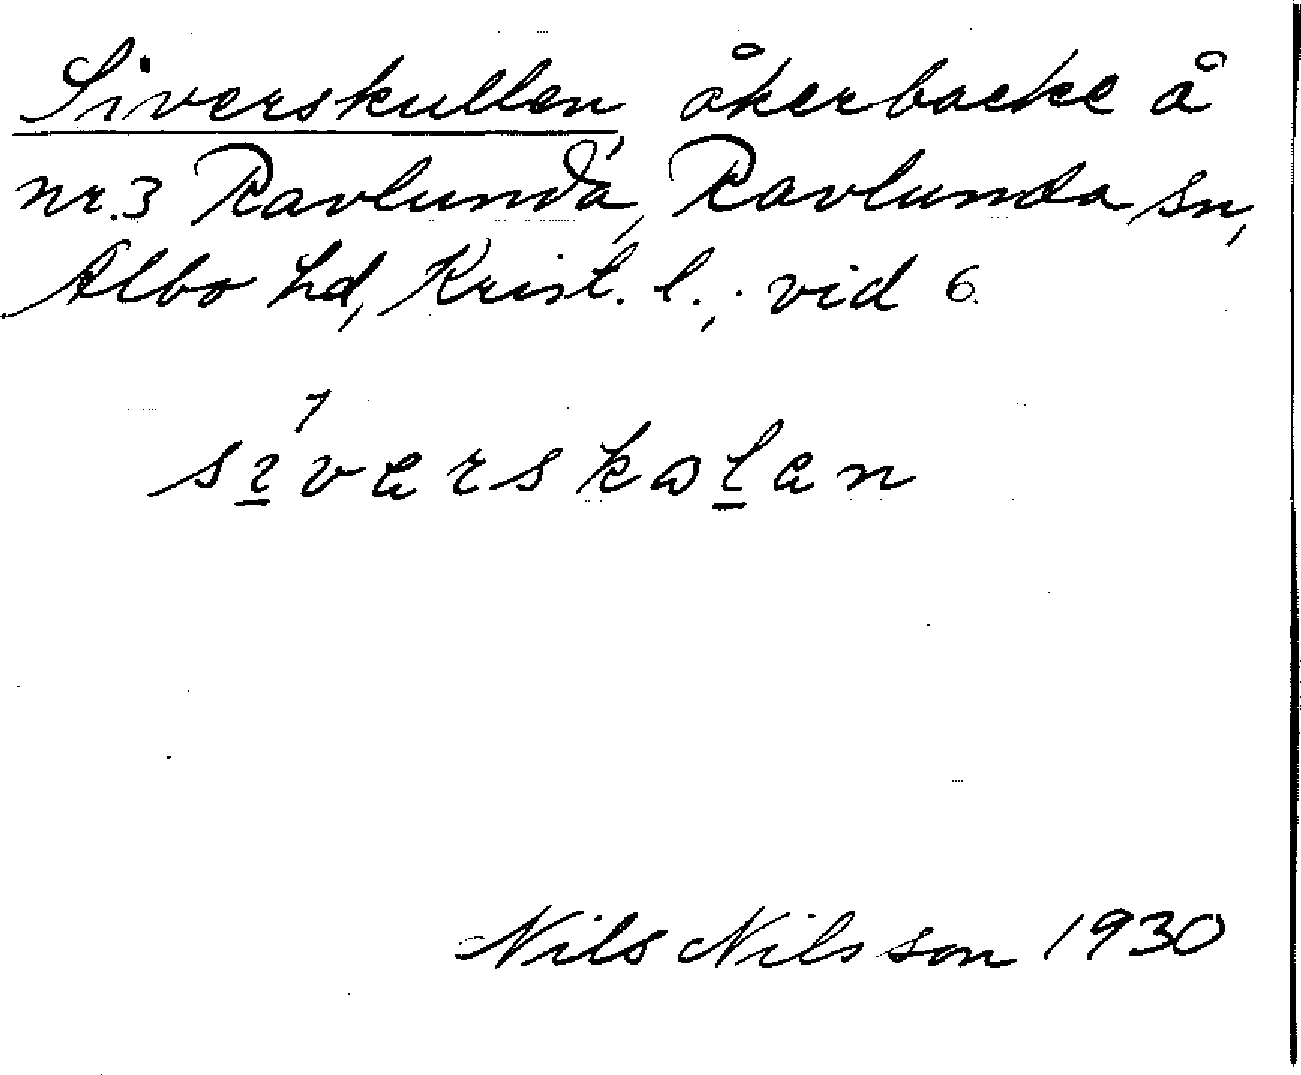 Siverskullen, åkerbacke å
nr. 3 Ravlunda, Ravlunda sn,
Albo hd, Krist. l., vid 6.
sivərskɷlən
Nils Nilsson 1930